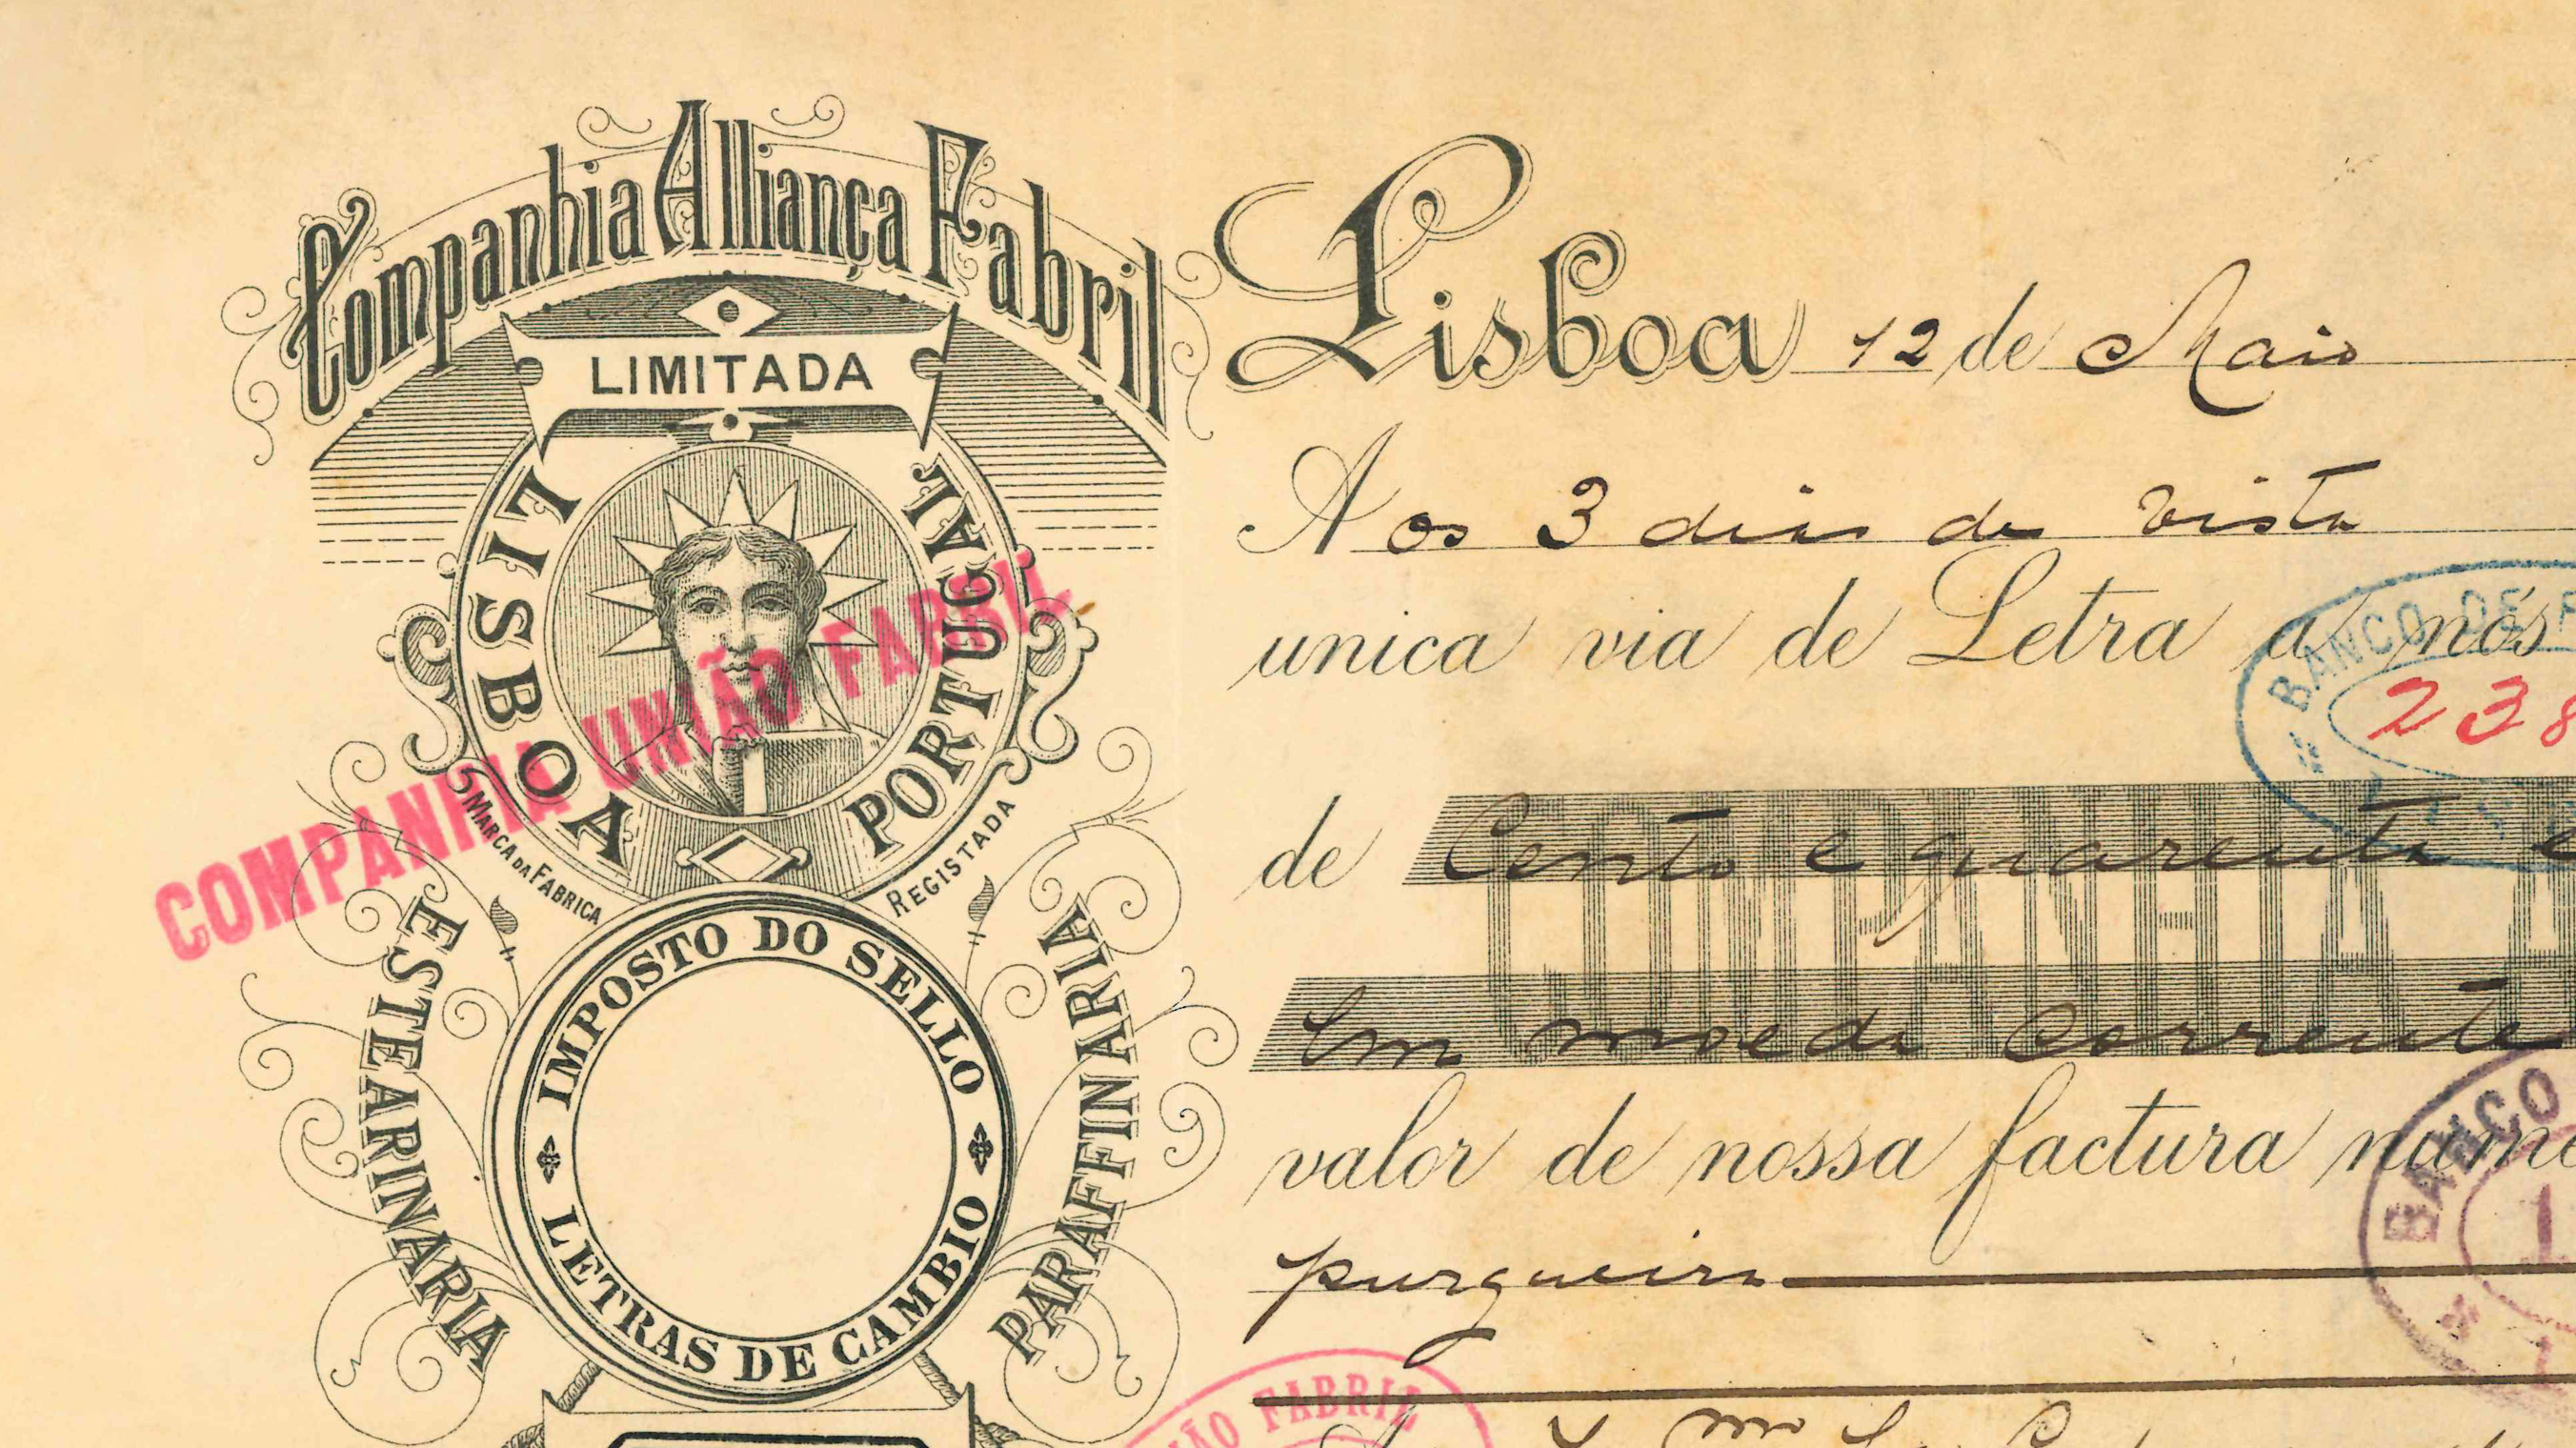 Companhia Alliança Fabril
LIMITADA
LISBOA PORTUGAL
COMPANHIA UNIÃO FABRIL
MARCA DA FABRICA REGISTADA
ESTEARINARIA
PARAFFINARIA
IMPOSTO DO SELLO
LETRAS DE CAMBIO
Lisboa 12 de Maio
Aos 3 dias de vista
unica via de Letra a nós
BANCO DE
238
de Cento e quarenta e
COMPANHIA A
Em moeda corrente
valor de nossa factura
BANCO
1
purgueira
FABRIL